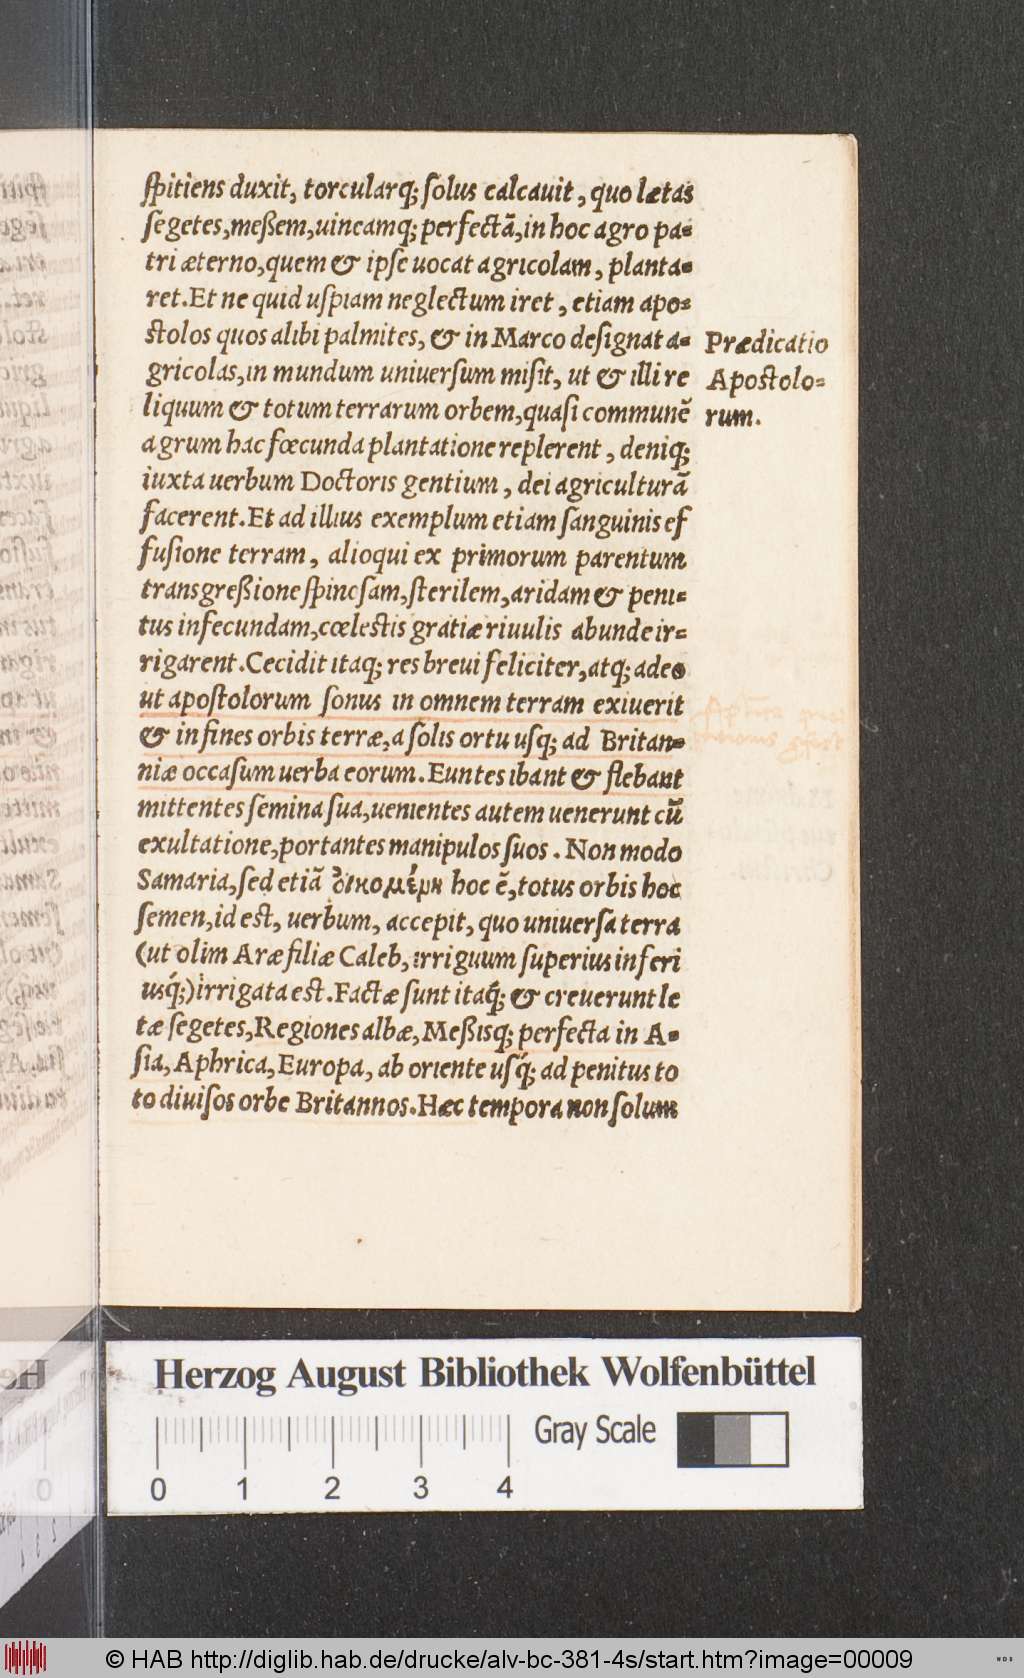 ſpitiens duxit, torcularq; ſolus calcauit, quo lætas
ſegetes, meßem, uineamq; perfectã, in hoc agro pa-
tri æterno, quem & ipſe uocat agricolam, planta-
ret. Et ne quid uſpiam neglectum iret, etiam apo-
ſtolos quos alibi palmites, & in Marco deſignat a-
gricolas, in mundum uniuerſum miſit, ut & illi re
liquum & totum terrarum orbem, quaſi communẽ
agrum hac fœcunda plantatione replerent, deniq;
iuxta uerbum Doctoris gentium, dei agriculturã
facerent. Et ad illius exemplum etiam ſanguinis ef
fuſione terram, alioqui ex primorum parentum
transgreßione ſpinoſam, ſterilem, aridam & peni-
tus infecundam, cœleſtis gratiæ riuulis abunde ir-
rigarent. Cecidit itaq; res breui feliciter, atq; adeo
ut apoſtolorum ſonus in omnem terram exiuerit
& in fines orbis terræ, a ſolis ortu uſq; ad Britan-
niæ occaſum uerba eorum. Euntes ibant & flebant
mittentes ſemina ſua, uenientes autem uenerunt cũ
exultatione, portantes manipulos ſuos. Non modo
Samaria, ſed etiã ὀικομέμη hoc ẽ, totus orbis hoc
ſemen, id eſt, uerbum, accepit, quo uniuerſa terra
(ut olim Aræ filiæ Caleb, irriguum ſuperius inferi
usq́;) irrigata eſt. Factæ ſunt itaq́; & creuerunt le
tæ ſegetes, Regiones albæ, Meßisq; perfecta in A-
ſia, Aphrica, Europa, ab oriente uſq́; ad penitus to
to diuiſos orbe Britannos. Hæc tempora non ſolum
Prædicatio
Apoſtolo-
rum.
Herzog August Bibliothek Wolfenbüttel
Gray Scale
0 1 2 3 4
© HAB http://diglib.hab.de/drucke/alv-bc-381-4s/start.htm?image=00009